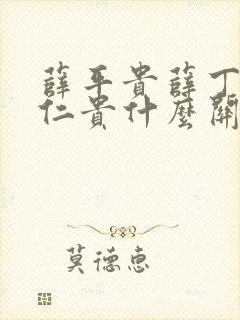 薛平貴薛丁
仁貴什麼關
莫德惠